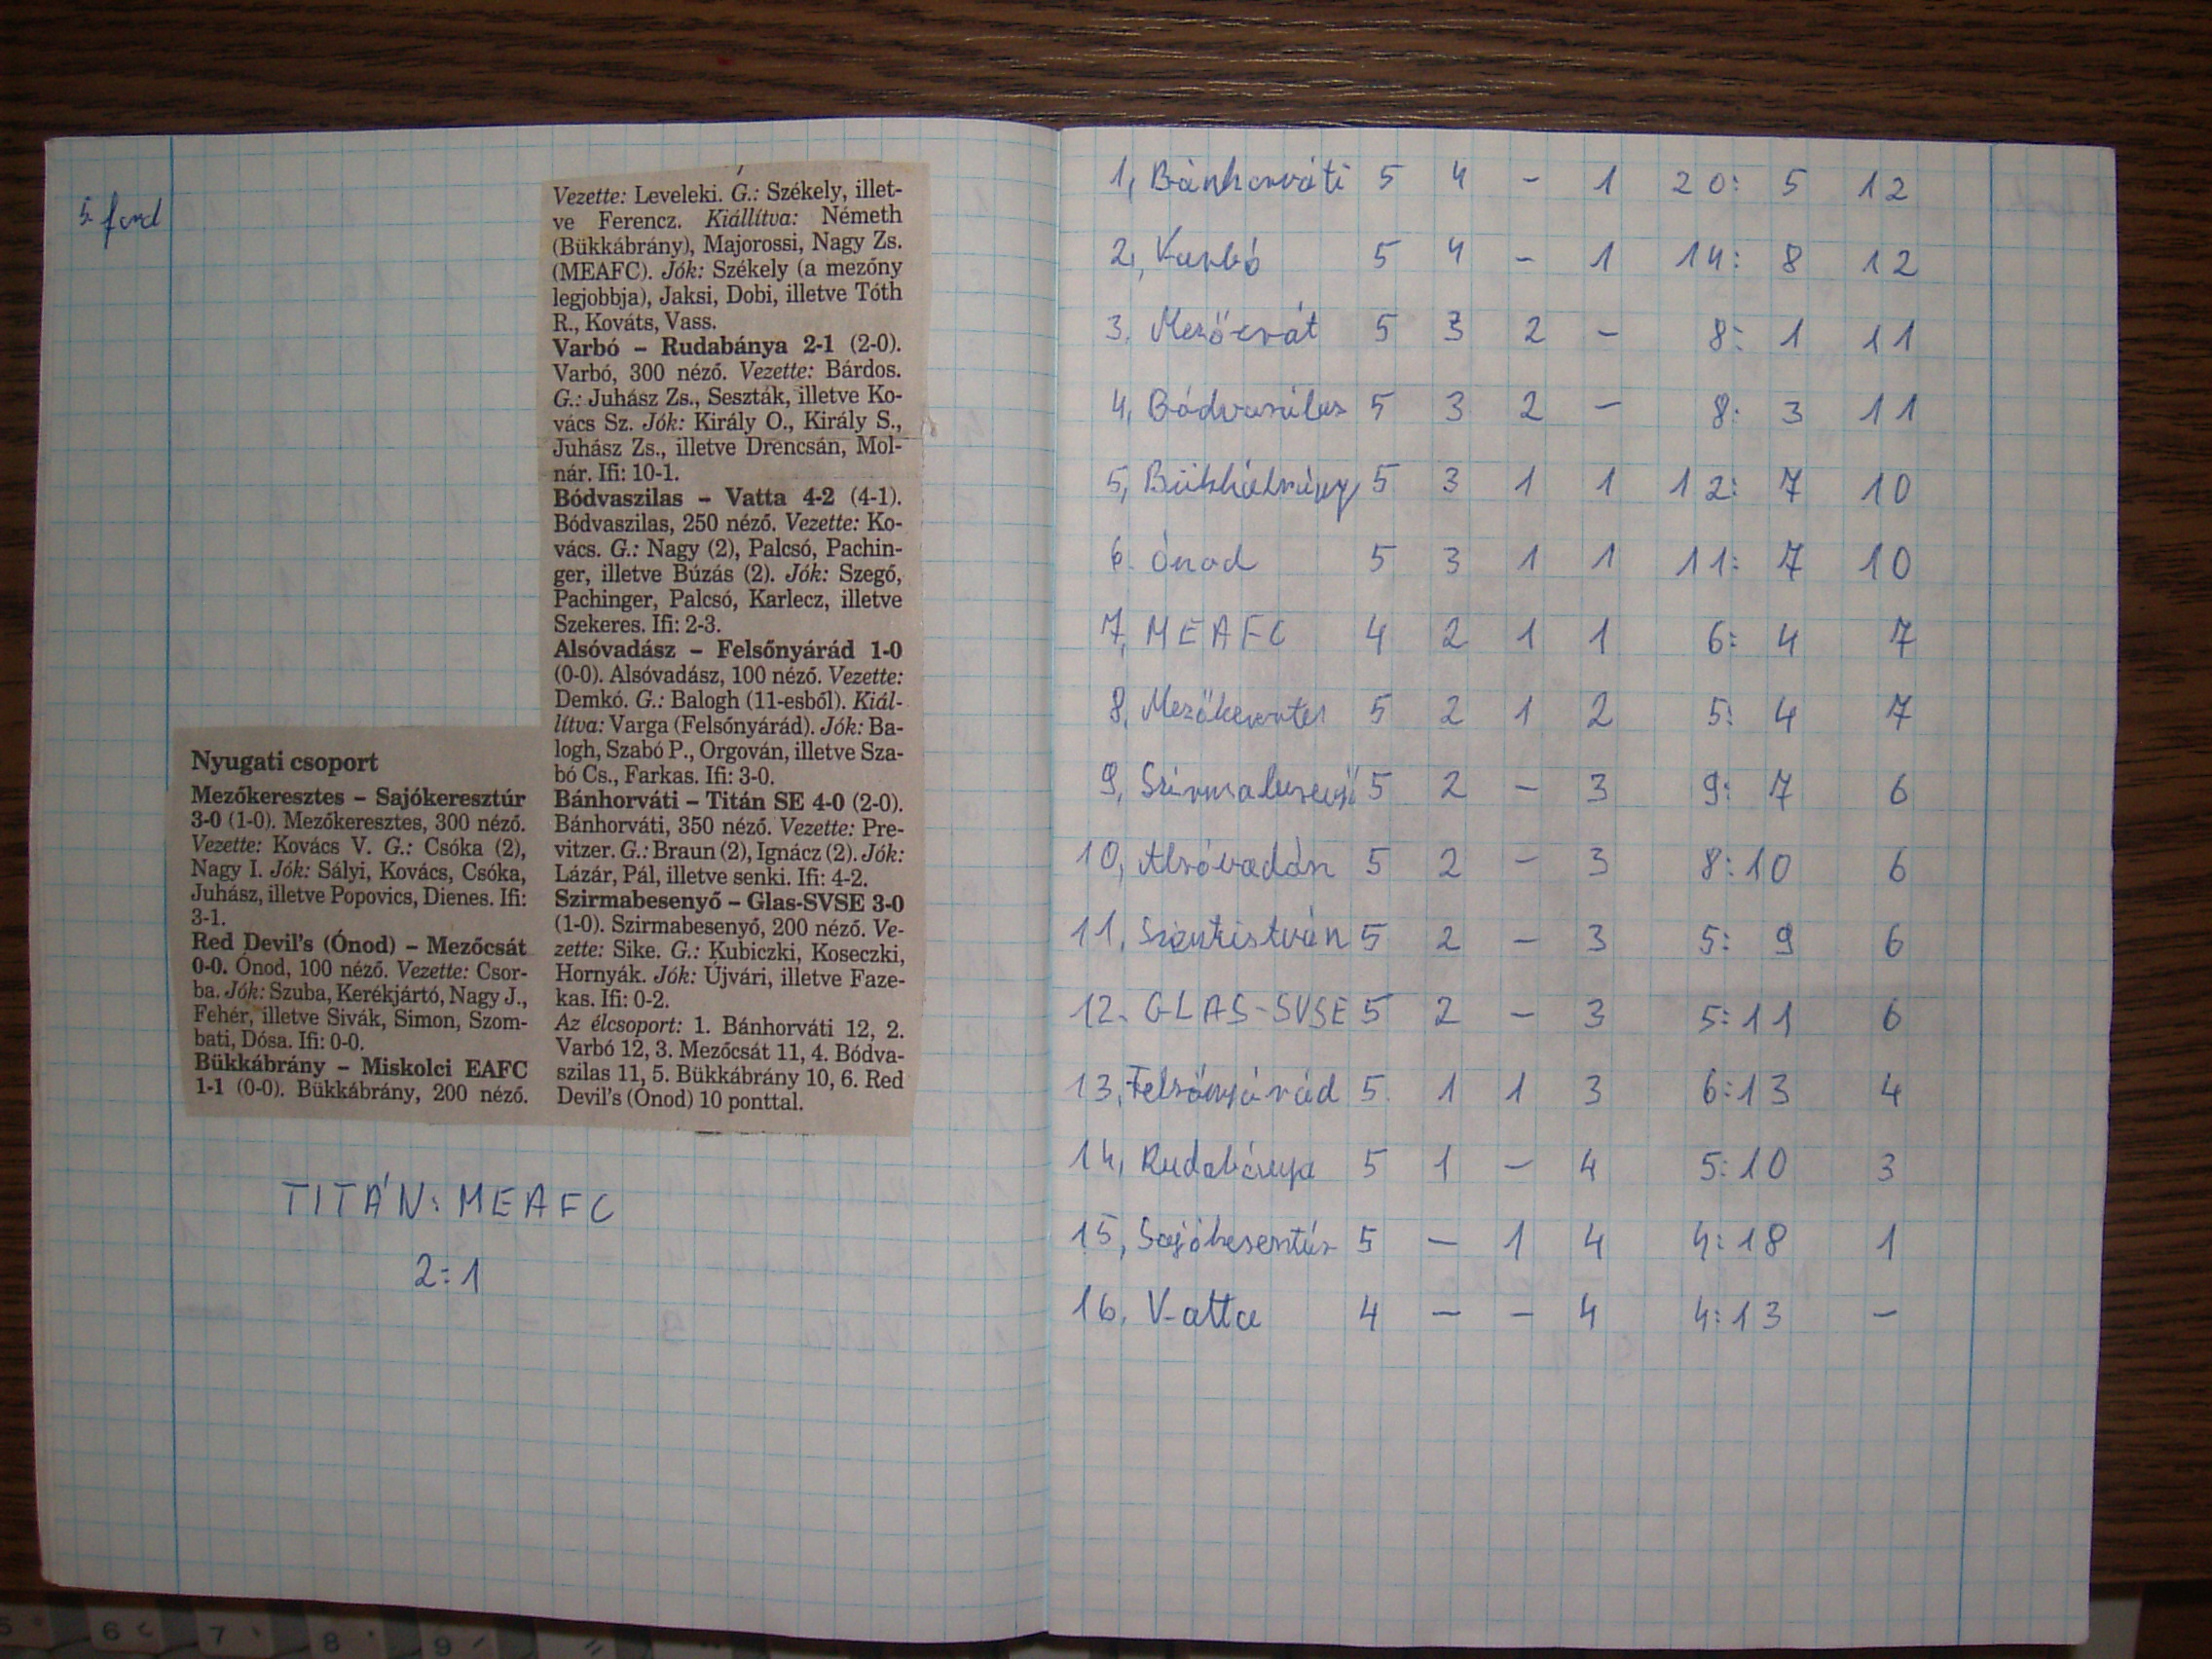 5. ford
Nyugati csoport
Mezőkeresztes – Sajókeresztúr
3-0 (1-0). Mezőkeresztes, 300 néző.
Vezette: Kovács V. G.: Csóka (2),
Nagy I. Jók: Sályi, Kovács, Csóka,
Juhász, illetve Popovics, Dienes. Ifi:
3-1.
Red Devil's (Ónod) – Mezőcsát
0-0. Ónod, 100 néző. Vezette: Csor-
ba. Jók: Szuba, Kerékjártó, Nagy J.,
Fehér, illetve Sivák, Simon, Szom-
bati, Dósa. Ifi: 0-0.
Bükkábrány – Miskolci EAFC
1-1 (0-0). Bükkábrány, 200 néző.
Vezette: Leveleki. G.: Székely, illet-
ve Ferencz. Kiállítva: Németh
(Bükkábrány), Majorossi, Nagy Zs.
(MEAFC). Jók: Székely (a mezőny
legjobbja), Jaksi, Dobi, illetve Tóth
R., Kováts, Vass.
Varbó – Rudabánya 2-1 (2-0).
Varbó, 300 néző. Vezette: Bárdos.
G.: Juhász Zs., Seszták, illetve Ko-
vács Sz. Jók: Király O., Király S.,
Juhász Zs., illetve Drencsán, Mol-
nár. Ifi: 10-1.
Bódvaszilas – Vatta 4-2 (4-1).
Bódvaszilas, 250 néző. Vezette: Ko-
vács. G.: Nagy (2), Palcsó, Pachin-
ger, illetve Búzás (2). Jók: Szegő,
Pachinger, Palcsó, Karlecz, illetve
Szekeres. Ifi: 2-3.
Alsóvadász – Felsőnyárád 1-0
(0-0). Alsóvadász, 100 néző. Vezette:
Demkó. G.: Balogh (11-esből). Kiál-
lítva: Varga (Felsőnyárád). Jók: Ba-
logh, Szabó P., Orgován, illetve Sza-
bó Cs., Farkas. Ifi: 3-0.
Bánhorváti – Titán SE 4-0 (2-0).
Bánhorváti, 350 néző. Vezette: Pre-
vitzer. G.: Braun (2), Ignácz (2). Jók:
Lázár, Pál, illetve senki. Ifi: 4-2.
Szirmabesenyő – Glas-SVSE 3-0
(1-0). Szirmabesenyő, 200 néző. Ve-
zette: Sike. G.: Kubiczki, Koseczki,
Hornyák. Jók: Újvári, illetve Faze-
kas. Ifi: 0-2.
Az élcsoport: 1. Bánhorváti 12, 2.
Varbó 12, 3. Mezőcsát 11, 4. Bódva-
szilas 11, 5. Bükkábrány 10, 6. Red
Devil's (Ónod) 10 ponttal.
TITÁN: MEAFC
2:1
1, Bánhorváti 5 4 – 1 20: 5 12
2, Varbó 5 4 – 1 14: 8 12
3. Mezőcsát 5 3 2 – 8: 1 11
4, Bódvaszilas 5 3 2 – 8: 3 11
5, Bükkábrány 5 3 1 1 12: 7 10
6. Ónod 5 3 1 1 11: 7 10
7, MEAFC 4 2 1 1 6: 4 7
8, Mezőkeresztes 5 2 1 2 5: 4 7
9, Szirmabesenyő 5 2 – 3 9: 7 6
10, Alsóvadász 5 2 – 3 8:10 6
11, Szentistván 5 2 – 3 5: 9 6
12. GLAS-SVSE 5 2 – 3 5:11 6
13, Felsőnyárád 5. 1 1 3 6:13 4
14, Rudabánya 5 1 – 4 5:10 3
15, Sajókeresztúr 5 – 1 4 4:18 1
16, Vatta 4 – – 4 4:13 –
5 6 7 8 9